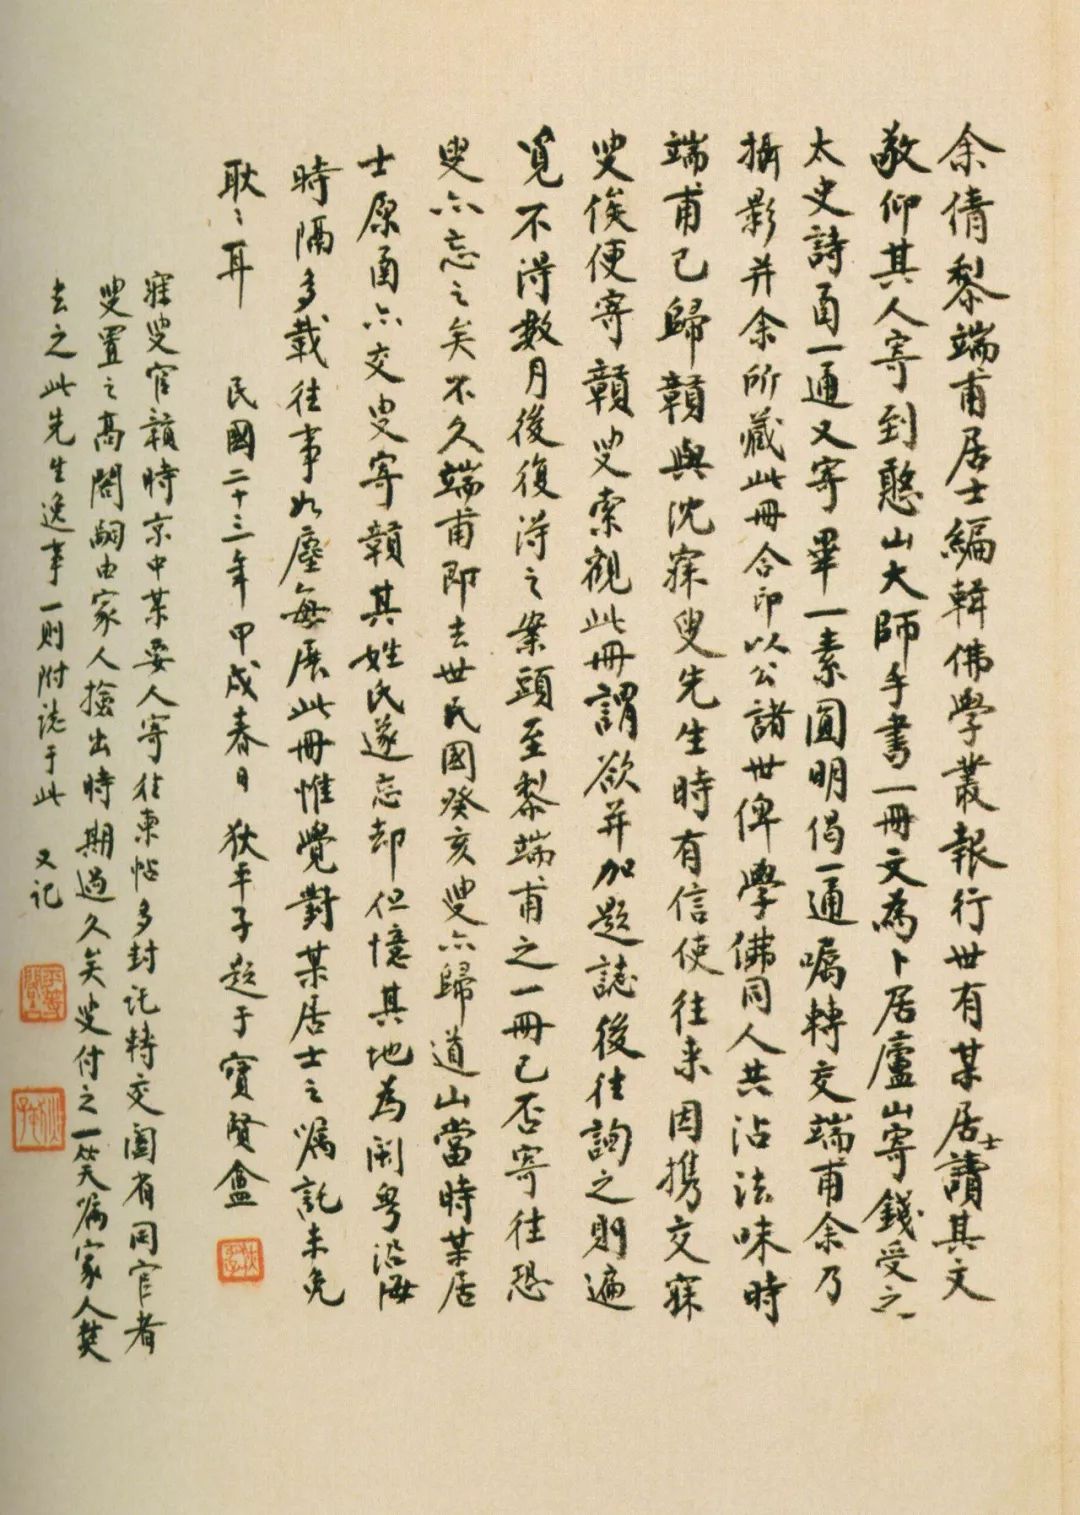 余倩黎端甫居士編輯佛學叢報行世有某居士讀其文
敬仰其人寄到憨山大師手書一冊文為卜居廬山寄錢受之
太史詩函一通又寄畢一素圓明偈一通囑轉交端甫余乃
攝影并余所藏此冊合印以公諸世俾學佛同人共沾法味時
端甫已歸贛與沈寐叟先生時有信使往来因携交寐
叟俟便寄贛叟索觀此冊謂欲并加題誌後往詢之則遍
覓不得數月後復得之案頭至黎端甫之一冊已否寄往恐
叟亦忘之矣不久端甫即去世民國癸亥叟亦歸道山當時某居
士原函亦交叟寄贛其姓氏遂忘却但憶其地為閩粤沿海
時隔多載往事如塵每展此冊惟覺對某居士之囑託未免
耿〻耳 民國二十三年甲戌春日 狄平子题于寶賢盦
寐叟官贛時京中某要人寄往柬帖多封託轉交闔省同官者
叟置之高閣嗣由家人撿出時期過久矣叟付之一笑囑家人焚
去之此先生逸事一則附誌于此 又记